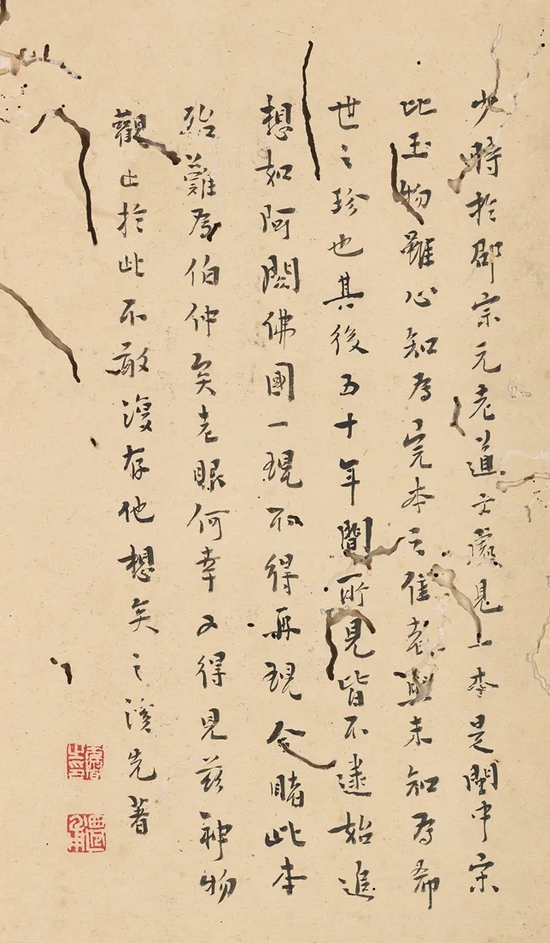 少時於邵宗元老道士處見一本是閣中宗
比玉物雖心知為完本之佳者與未知為希
世之珍也其後五十年間所見皆不逮始追
想如阿閦佛國一現不得再現今睹此本
殆難為伯仲矣老眼何幸又得見茲神物
觀止於此不敢復存他想矣之溪先著